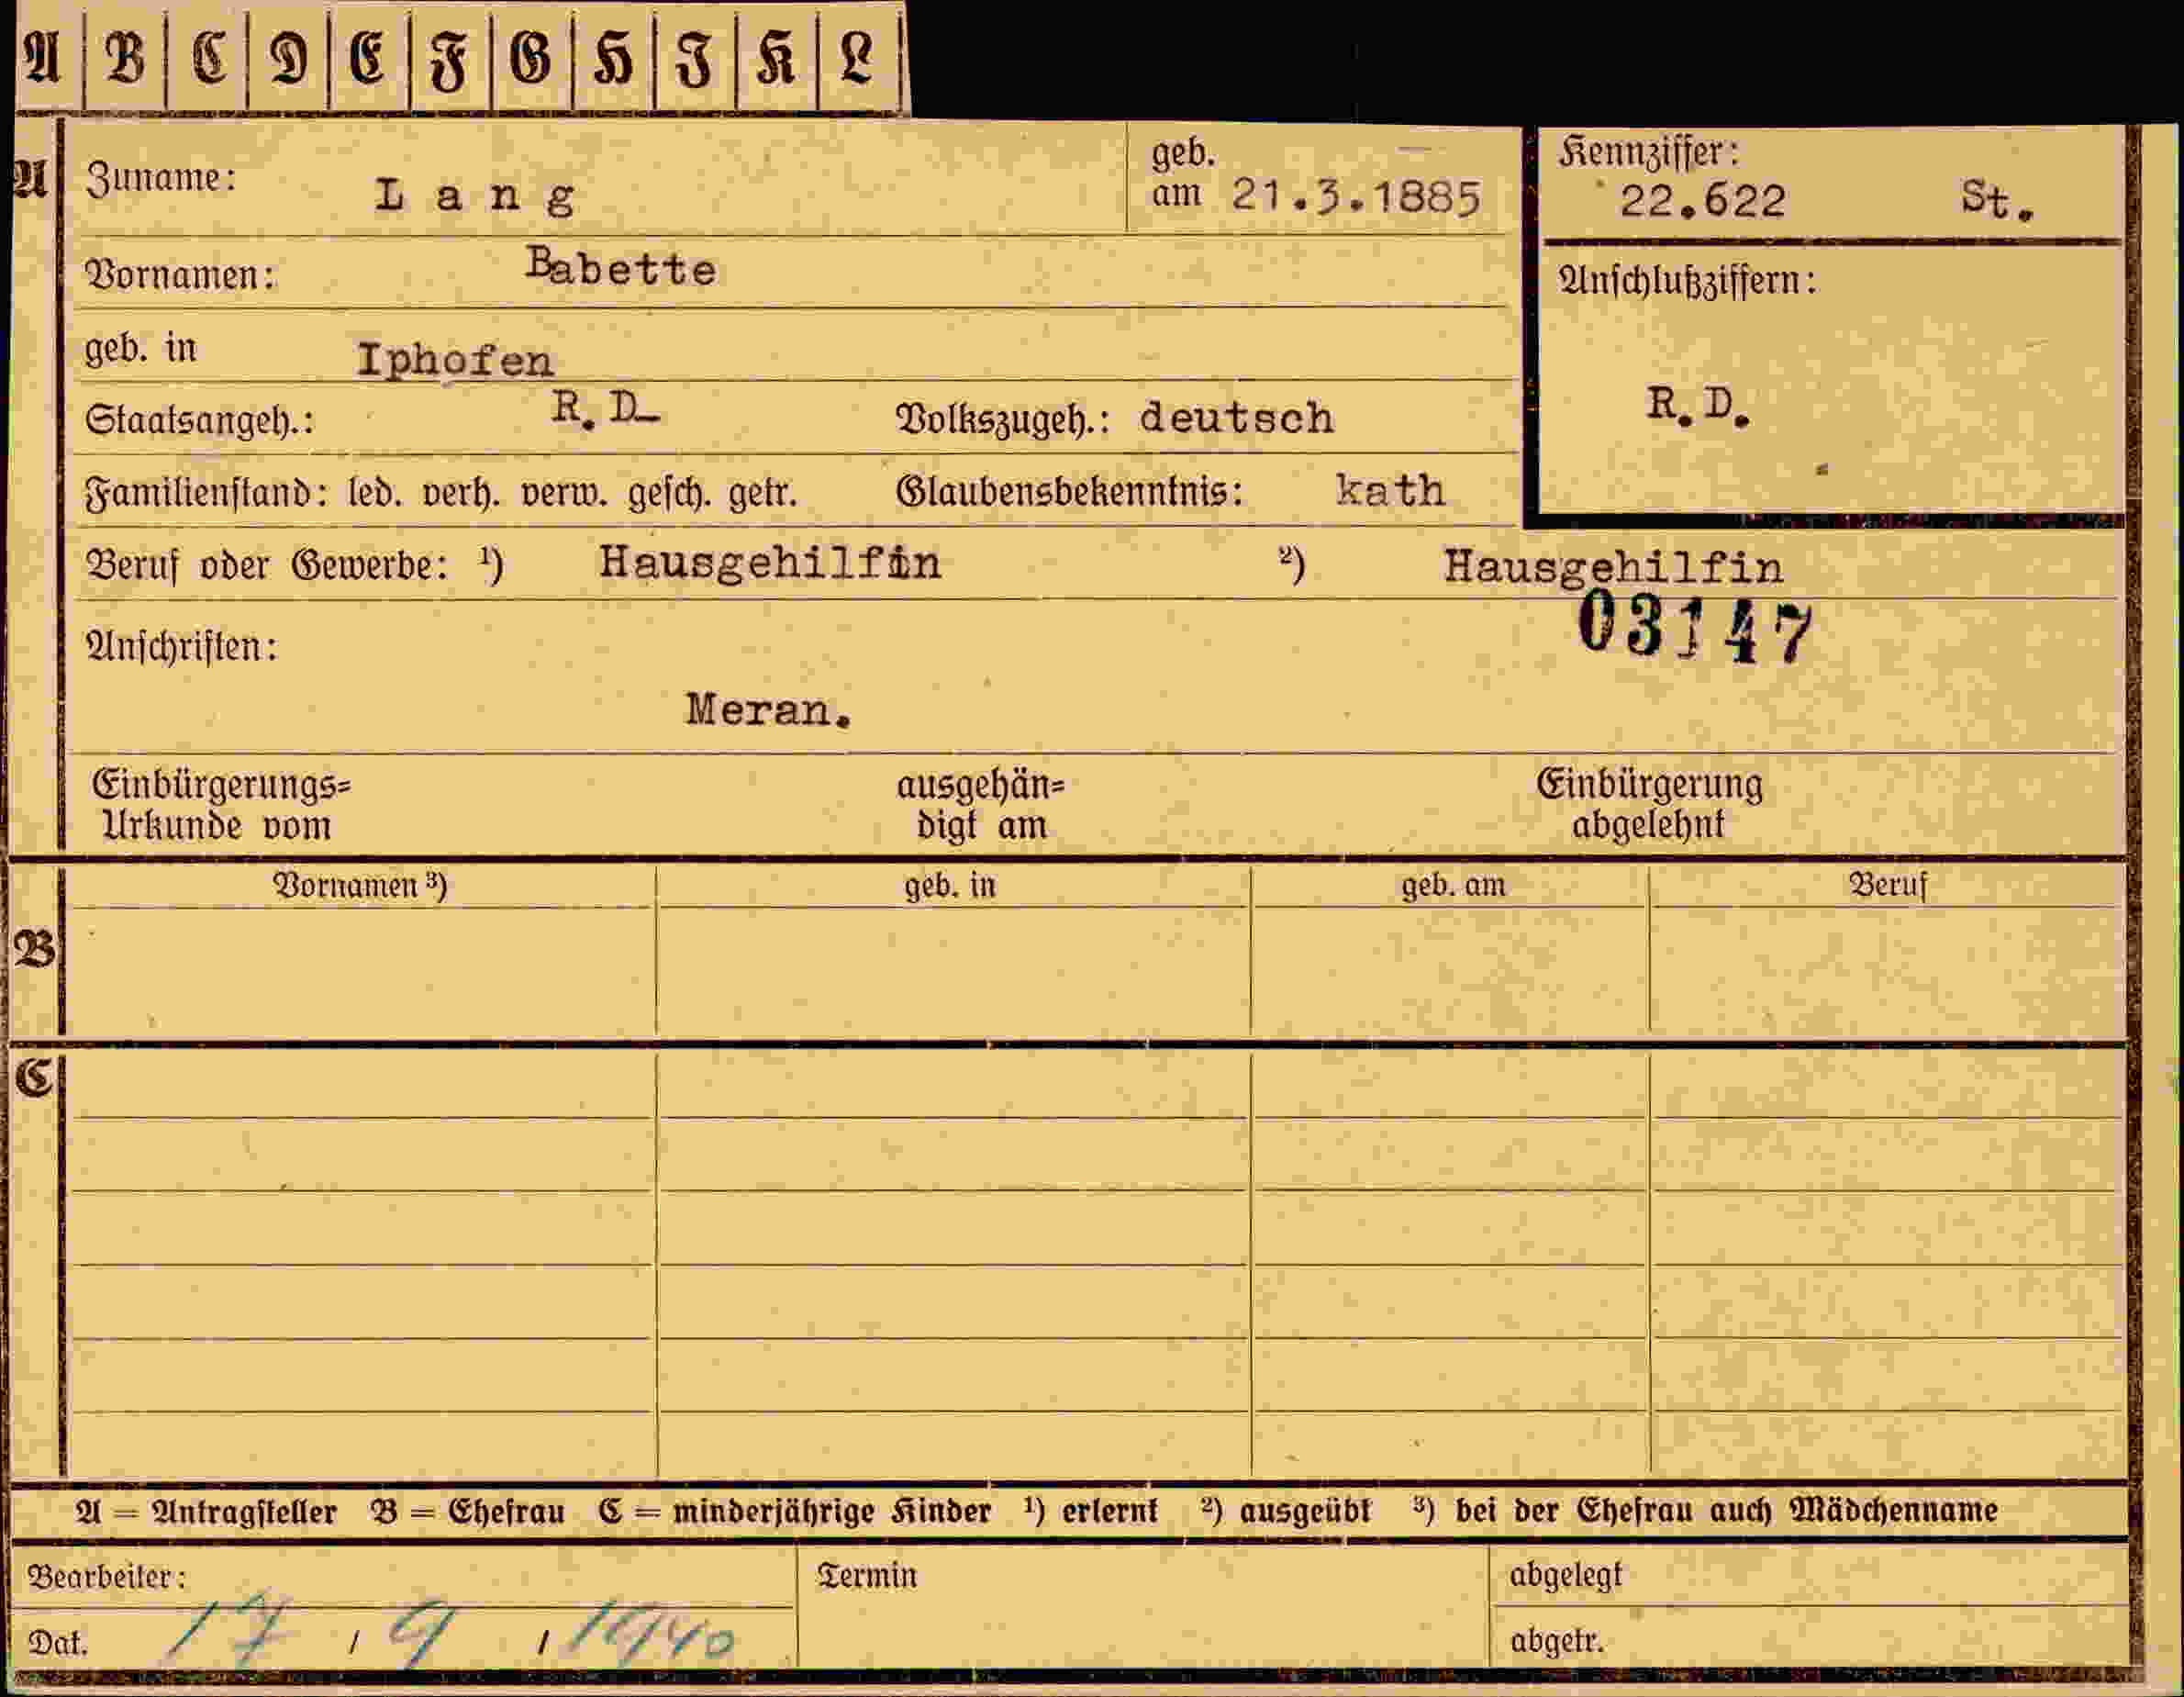 A B C D E F G H I K L
A Zuname: Lang geb. am 21.3.1885 Kennziffer: 22.622 St.
Vornamen: Babette Anschlußziffern:
geb. in Iphofen
Staatsangeh.: R.D. Volkszugeh.: deutsch R.D.
Familienstand: led. verh. verw. gesch. getr. Glaubensbekenntnis: kath
Beruf oder Gewerbe: ¹) Hausgehilfin ²) Hausgehilfin
03147
Anschriften:
Meran.
Einbürgerungs= ausgehän= Einbürgerung
Urkunde vom digt am abgelehnt
Vornamen ³) geb. in geb. am Beruf
B
C
A = Antragsteller B = Ehefrau C = minderjährige Kinder ¹) erlernt ²) ausgeübt ³) bei der Ehefrau auch Mädchenname
Bearbeiter: Termin abgelegt
Dat. 17 / 9 / 1940 abgetr.